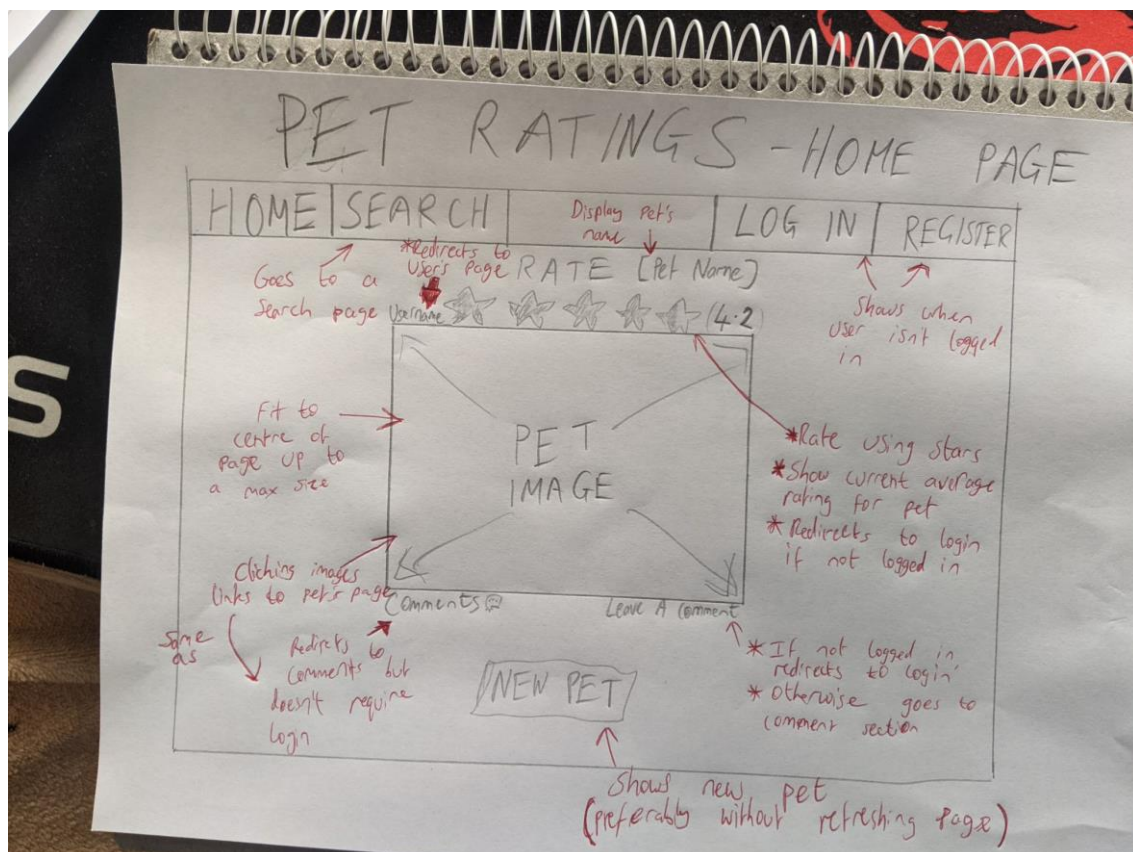 PET RATINGS - HOME PAGE
HOME
SEARCH
Display Pet's
name
LOG IN
REGISTER
Goes to a
Search page
*Redirects to
User's Page
RATE [Pet Name]
Username
(4.2
Shows when
user isn't logged
in
Fit to
centre of
page up to
a max size
PET
IMAGE
*Rate using stars
*Show current average
rating for pet
*Redirects to login
if not logged in
Clicking images
links to pet's page
Comments
Leave A Comment
Same
as
Redirects to
comments but
doesn't require
login
*If not logged in
redirects to login
*Otherwise goes to
comment section
NEW PET
Shows new pet
(preferably without refreshing page)
S